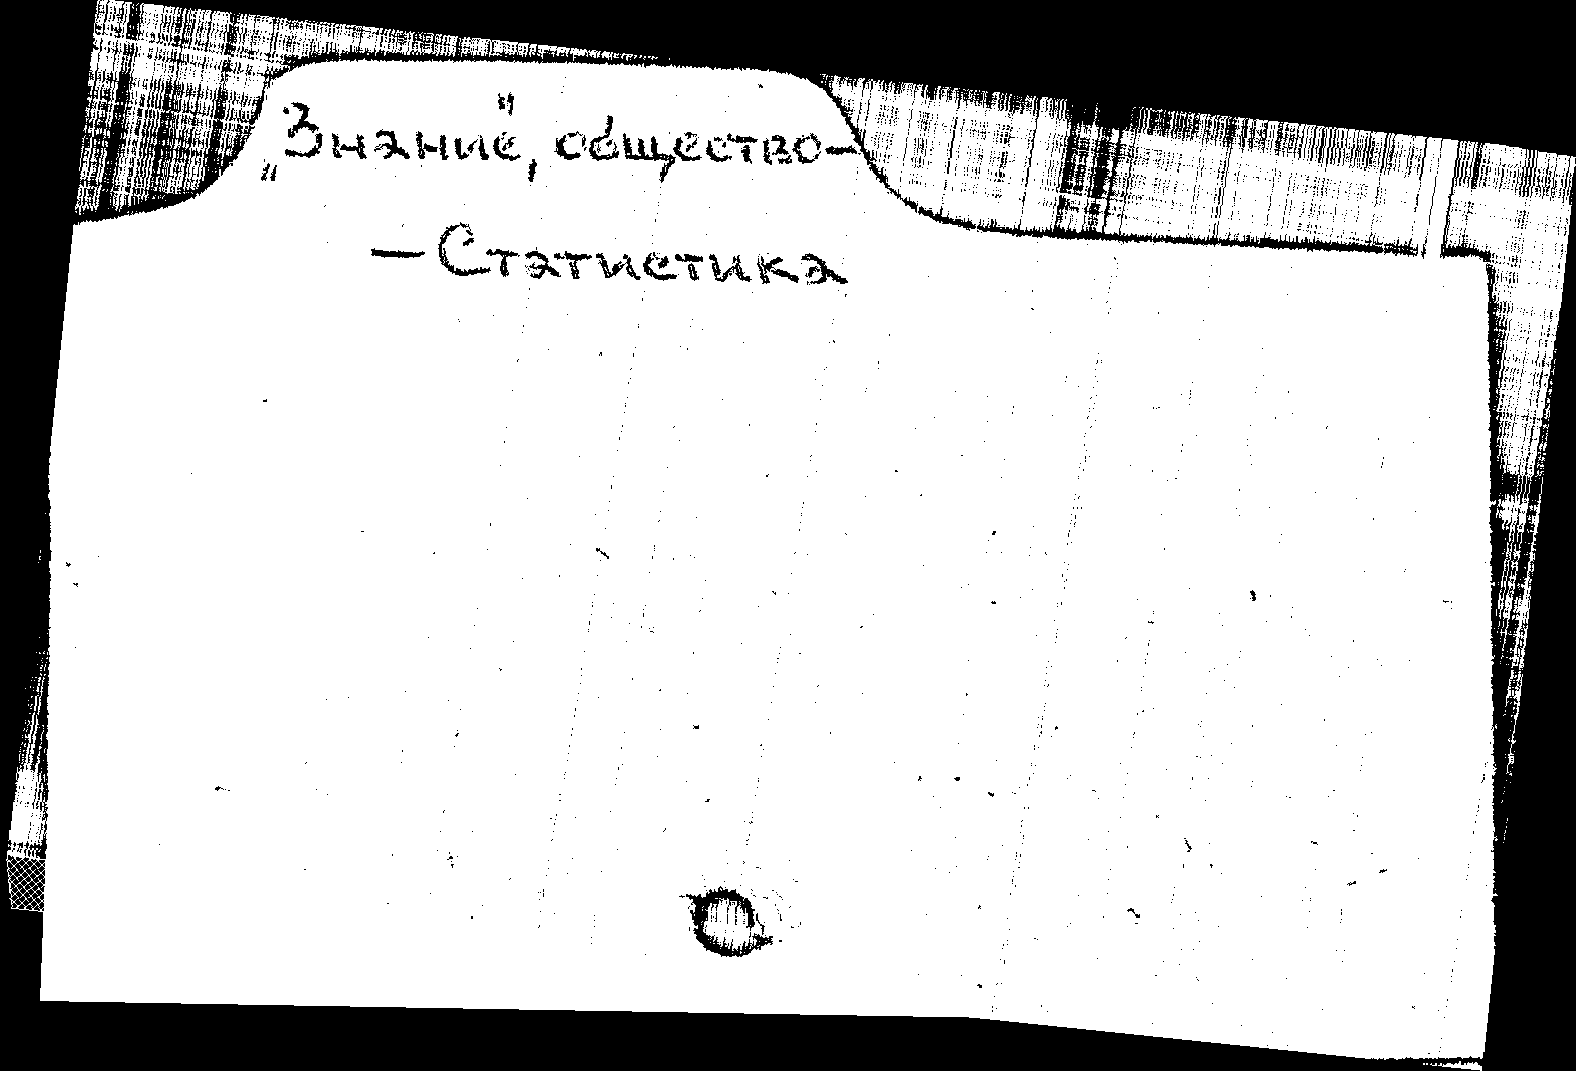 „Знание“, общество—
— Статистика